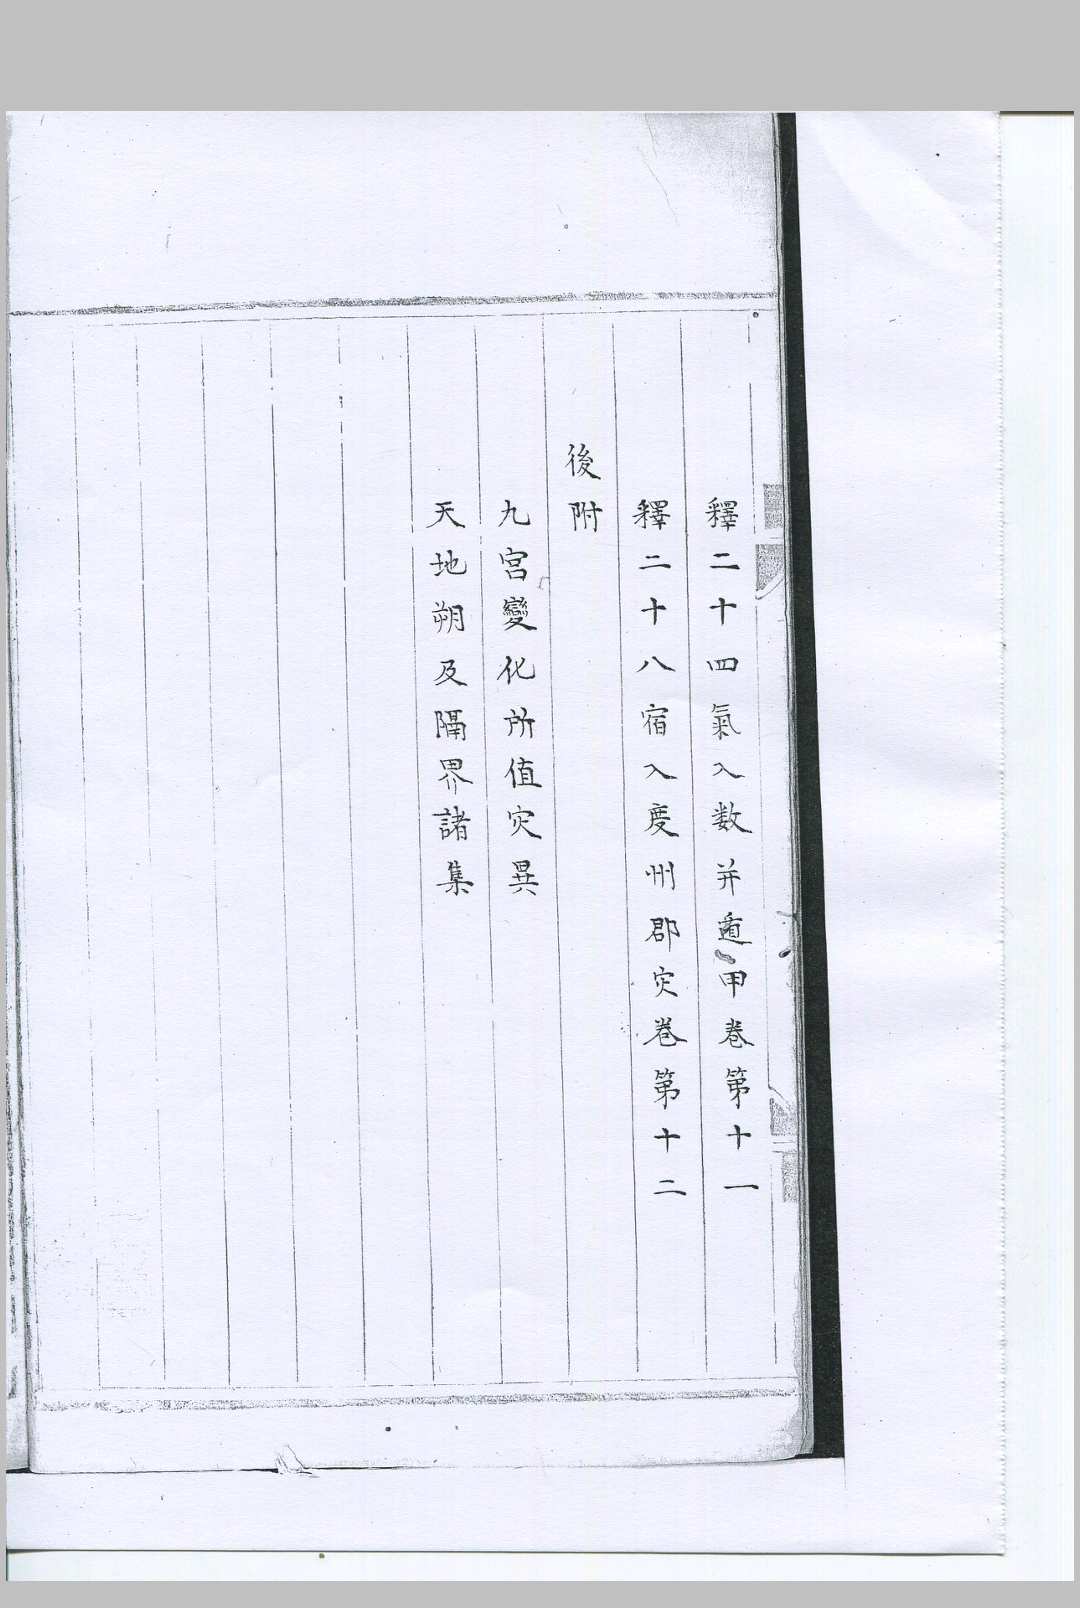 釋二十四氣入数并遁甲卷第十一
釋二十八宿入度州郡灾卷第十二
後附
九宫變化所值灾異
天地朔及隔界諸集